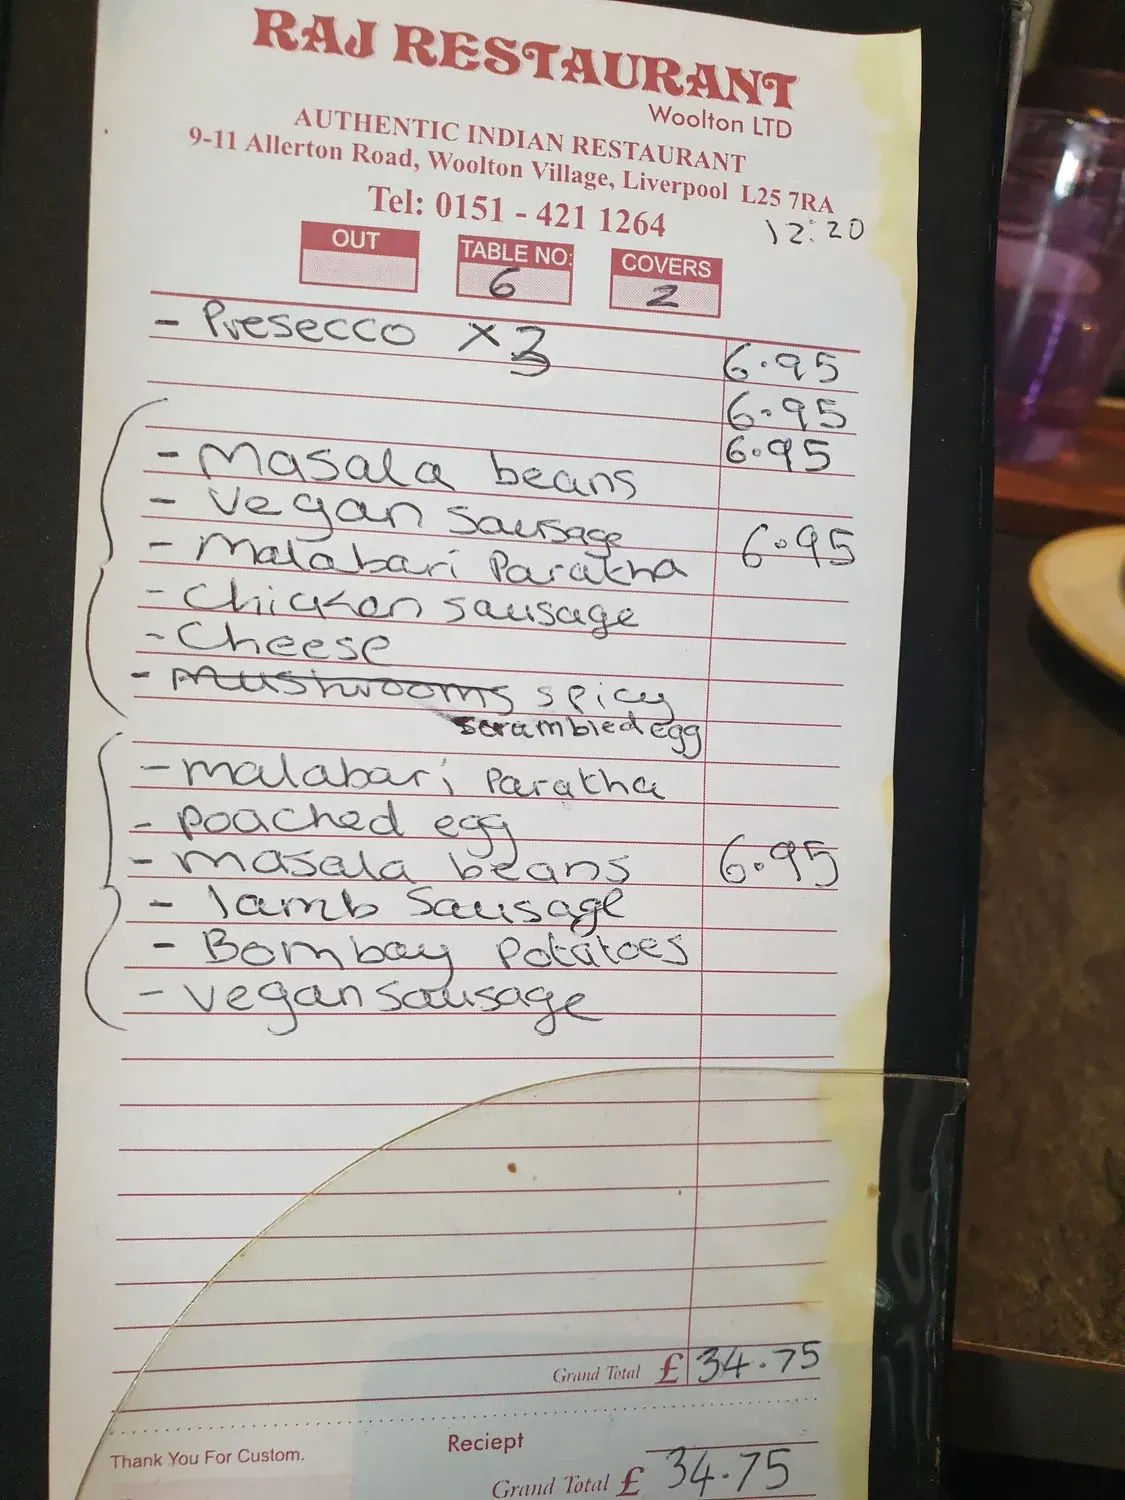 RAJ RESTAURANT
Woolton LTD
AUTHENTIC INDIAN RESTAURANT
9-11 Allerton Road, Woolton Village, Liverpool L25 7RA
Tel: 0151 - 421 1264
12:20
OUT
TABLE NO:
6
COVERS
2
- Presecco x3
6.95
6.95
6.95
- Masala beans
- Vegan sausage
6.95
- Malabari Paratha
- Chicken sausage
- Cheese
- Mushrooms spicy
scrambled egg
- malabari Paratha
- poached egg
- masala beans
6.95
- lamb Sausage
- Bombay Potatoes
- vegan sausage
Grand Total £ 34.75
Thank You For Custom.
Reciept
Grand Total £ 34.75